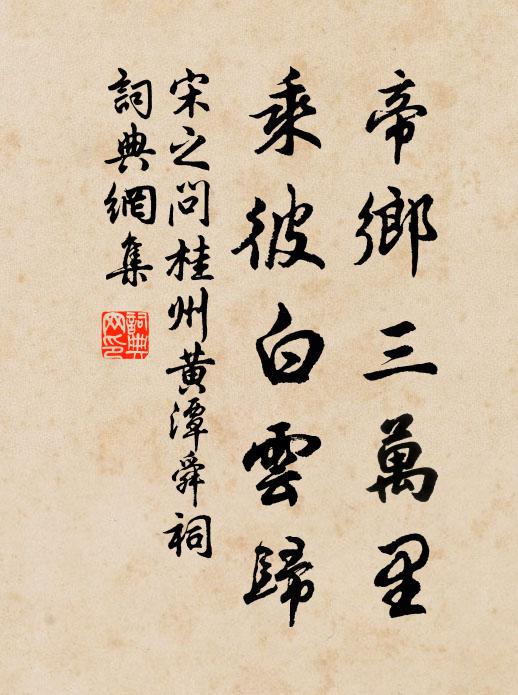 帝鄉三萬里
乘彼白雲歸
宋之问桂州黃潭舜祠
詞典網集
詞典網印